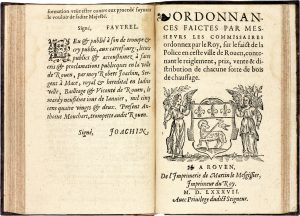 formation veut estre connu aux procés suyuant
le vouloir de sadite Majesté.
Signé, FAVTREL.
LEu & publié à son de trompe &
cry public, aux carrefourgs, lieux
publics & accoustumez, à faire
cris & proclamations publiques en la ville
de Rouen, par moy Robert Joachin, Sergent
à Mace, royal & heredital en ladite
Ville, Bailliage & Viconté de Rouen, le
mardy neufiéme iour de Ianuier, mil cinq
cens quatre vingts & deux. Present Anthoine
Mouchart, trompette audit Rouen.
Signé, JOACHIN.
ORDONNAN
CES FAICTES PAR MES-
SIEVRS LES COMMISSAIRES
ordonnez par le Roy, sur le faict de la
Police en ceste ville de Rouen, conte-
nant le reiglement, prix, vente &
distribution de chacune sorte de bois
de chauffage.
A ROVEN,
De l'Imprimerie de Martin le Mesgissier,
Imprimeur du Roy.
M. D. LXXXVII.
Auec Priuilege dudit Seigneur.